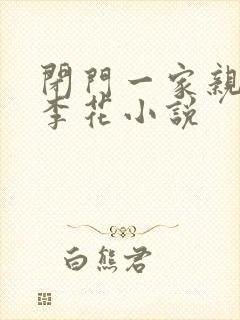 閉門一家親
李花小說
白熊君